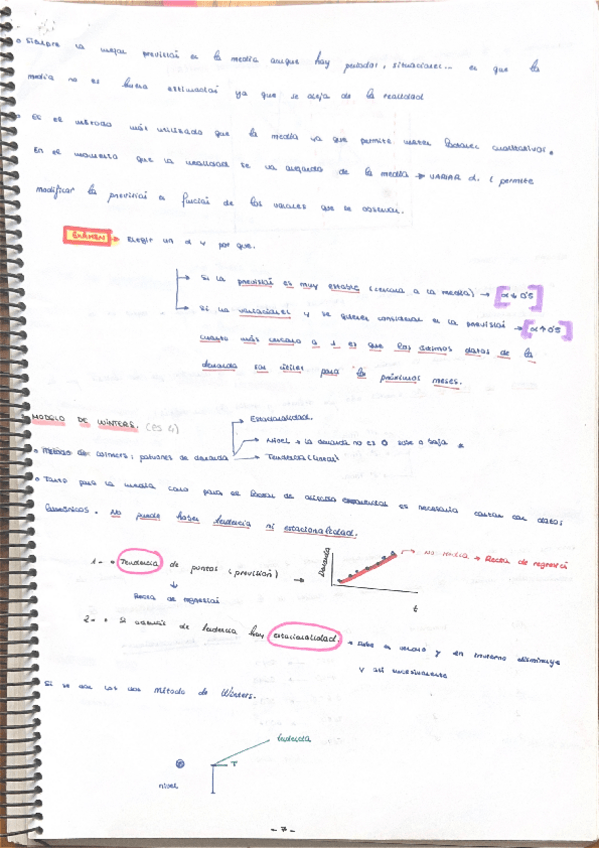 • Siempre la mejor previsión es la media aunque hay periodos, situaciones... en que la
media no es buena estimación ya que se aleja de la realidad
• Es el método más utilizado que la media ya que permite meter factores cualitativos.
En el momento que la realidad se va alejando de la media → VARIAR α. (permite
modificar la previsión en función de los valores que se observan.
EXAMEN → Elegir un α y por que.
Si la previsión es muy estable (cercana a la media) → [α ↓ 0'5]
Si hay variaciones y se quieren considerar en la previsión → [α ↑ 0'5]
cuanto más cercano a 1 es que los últimos datos de la
demanda son útiles para los próximos meses.
MODELO DE WINTERS. (es 4)
Estacionalidad.
Nivel → la demanda no es 0 sube o baja
• Método de winters; patrones de demanda
Tendencia (lineas)
• Tanto para la media como para el factor de alisado exponencial es necesario contar con datos
históricos. No puede haber tendencia ni estacionalidad.
1.- • Tendencia de puntos (previsión) →
Recta de regresión
Demanda
t
No media → Recta de regresión
2.- • Si además de tendencia hay estacionalidad. → Sube en verano y en invierno disminuye
y así sucesivamente
• Si se dan los dos Método de Winters.
tendencia
T
nivel
- 7 -